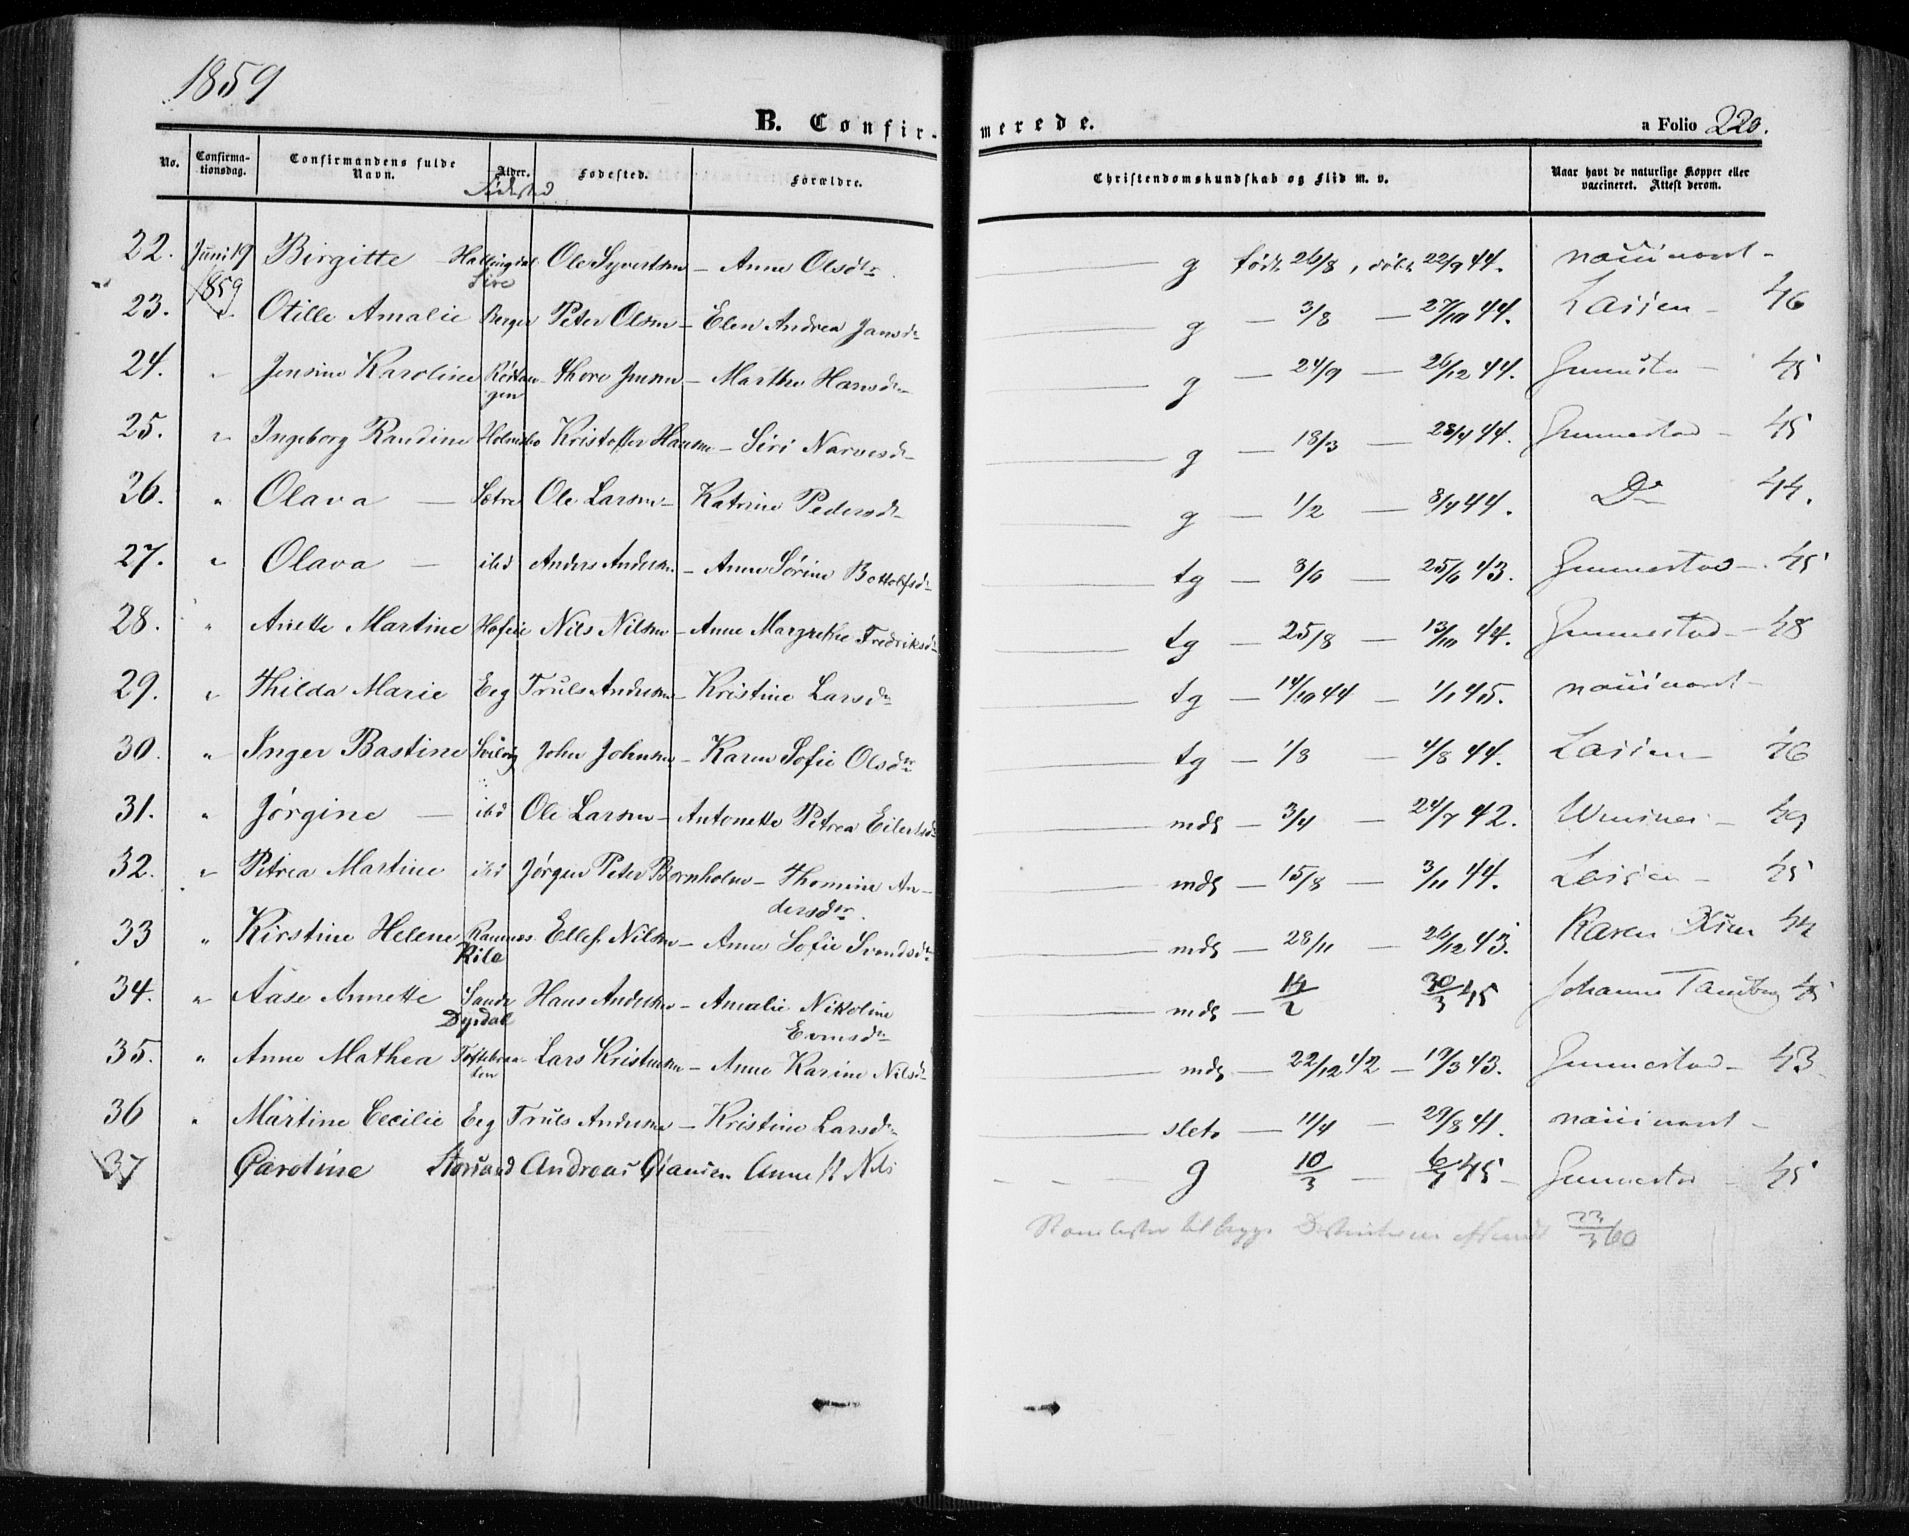 1859
B. Confirmerede. a Folio 220.
No. Confirmationsdag. Confirmandens fulde Navn. Alder. Fødested. Forældre. Christendomskundskab og Flid m. v. Naar havt de naturlige Kopper eller vaccineret. Attest derom.
Fødested
22. Juni 19 1859 Birgitte — Ole Syvertsen — Anne Olsdr. g født 26/8, døbt 22/9 44.
23. Otille Amalie Berger Peter Olsen — Elen Andrea Jansdr g — 3/8 — 27/10 44. Lassen — 46
24. " Jensine Karoline Rødtangen Thore Jensen — Marthe Hansdr g — 24/9 — 26/12 44. Gunnestad — 45
25. " Ingeborg Randine Holmsbo Kristoffer Hansen — Siri Narvesdr g — 18/3 — 28/4 44. Gunnestad — 45
26. " Olava — Sætre Ole Larsen — Katrine Pedersdr g — 1/2 — 8/4 44. Do 44.
27. " Olava — ibid Anders Andersen — Anne Sørine Bottolfsdr tg — 8/6 — 25/6 43. Gunnestad — 45
28. " Anette Martine Nils Nilsen — Anne Margrethe Fredriksdr tg — 25/8 — 13/10 44. Gunnestad — 48
29. " Thilda Marie Eeg Truls Andersen — Kristine Larsdr tg — 14/10 44 — 1/1 45.
30. " Inger Bastine Svelvig John Johnsen — Karen Sofie Olsdr tg — 1/8 — 4/8 44. Lassen — 46
31. " Jørgine — ibd Ole Larsen — Antonette Petrea Eilertsdr mdg — 3/4 — 24/7 42. 49
32. " Petrea Martine ibd Jørgen Peter Bornholm — Thomine Andersdr. mdg — 15/8 — 3/11 44. Lassen — 45
33 " Kirstine Helene Ramnes Ellef Nilsen — Anne Sofie Svendsdr mdg — 28/11 — 26/12 43. Karen Olsen 44
34. " Aase Annette Sande Hans Andersen — Amalie Nikoline Evensdr mdg — 14/2 30/3 45 Johanne 45
Dyrdal
35. " Anne Mathea Toftebraaten Lars Kristensen — Anne Karine Nilsdr mdg — 22/12 42 — 19/3 43. Gunnestad — 43
36 " Martine Cecilie Eeg Truls Andersen — Kristine Larsdr slet — 11/4 — 29/8 41.
37 Caroline Storsand Andreas Anne Nils g 10/3 — 6/7 45 — Gunnestad — 45
til begge 23/3 60